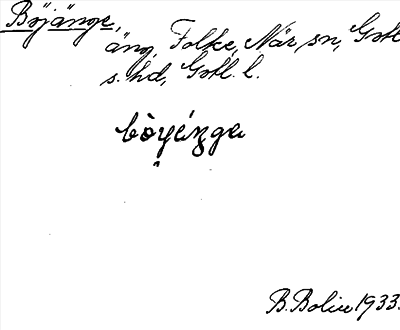 Böjänge,
äng, Folke, När sn, Gotl
s. hd, Gotl. l.
bòyénga
B. Bolin 1933.